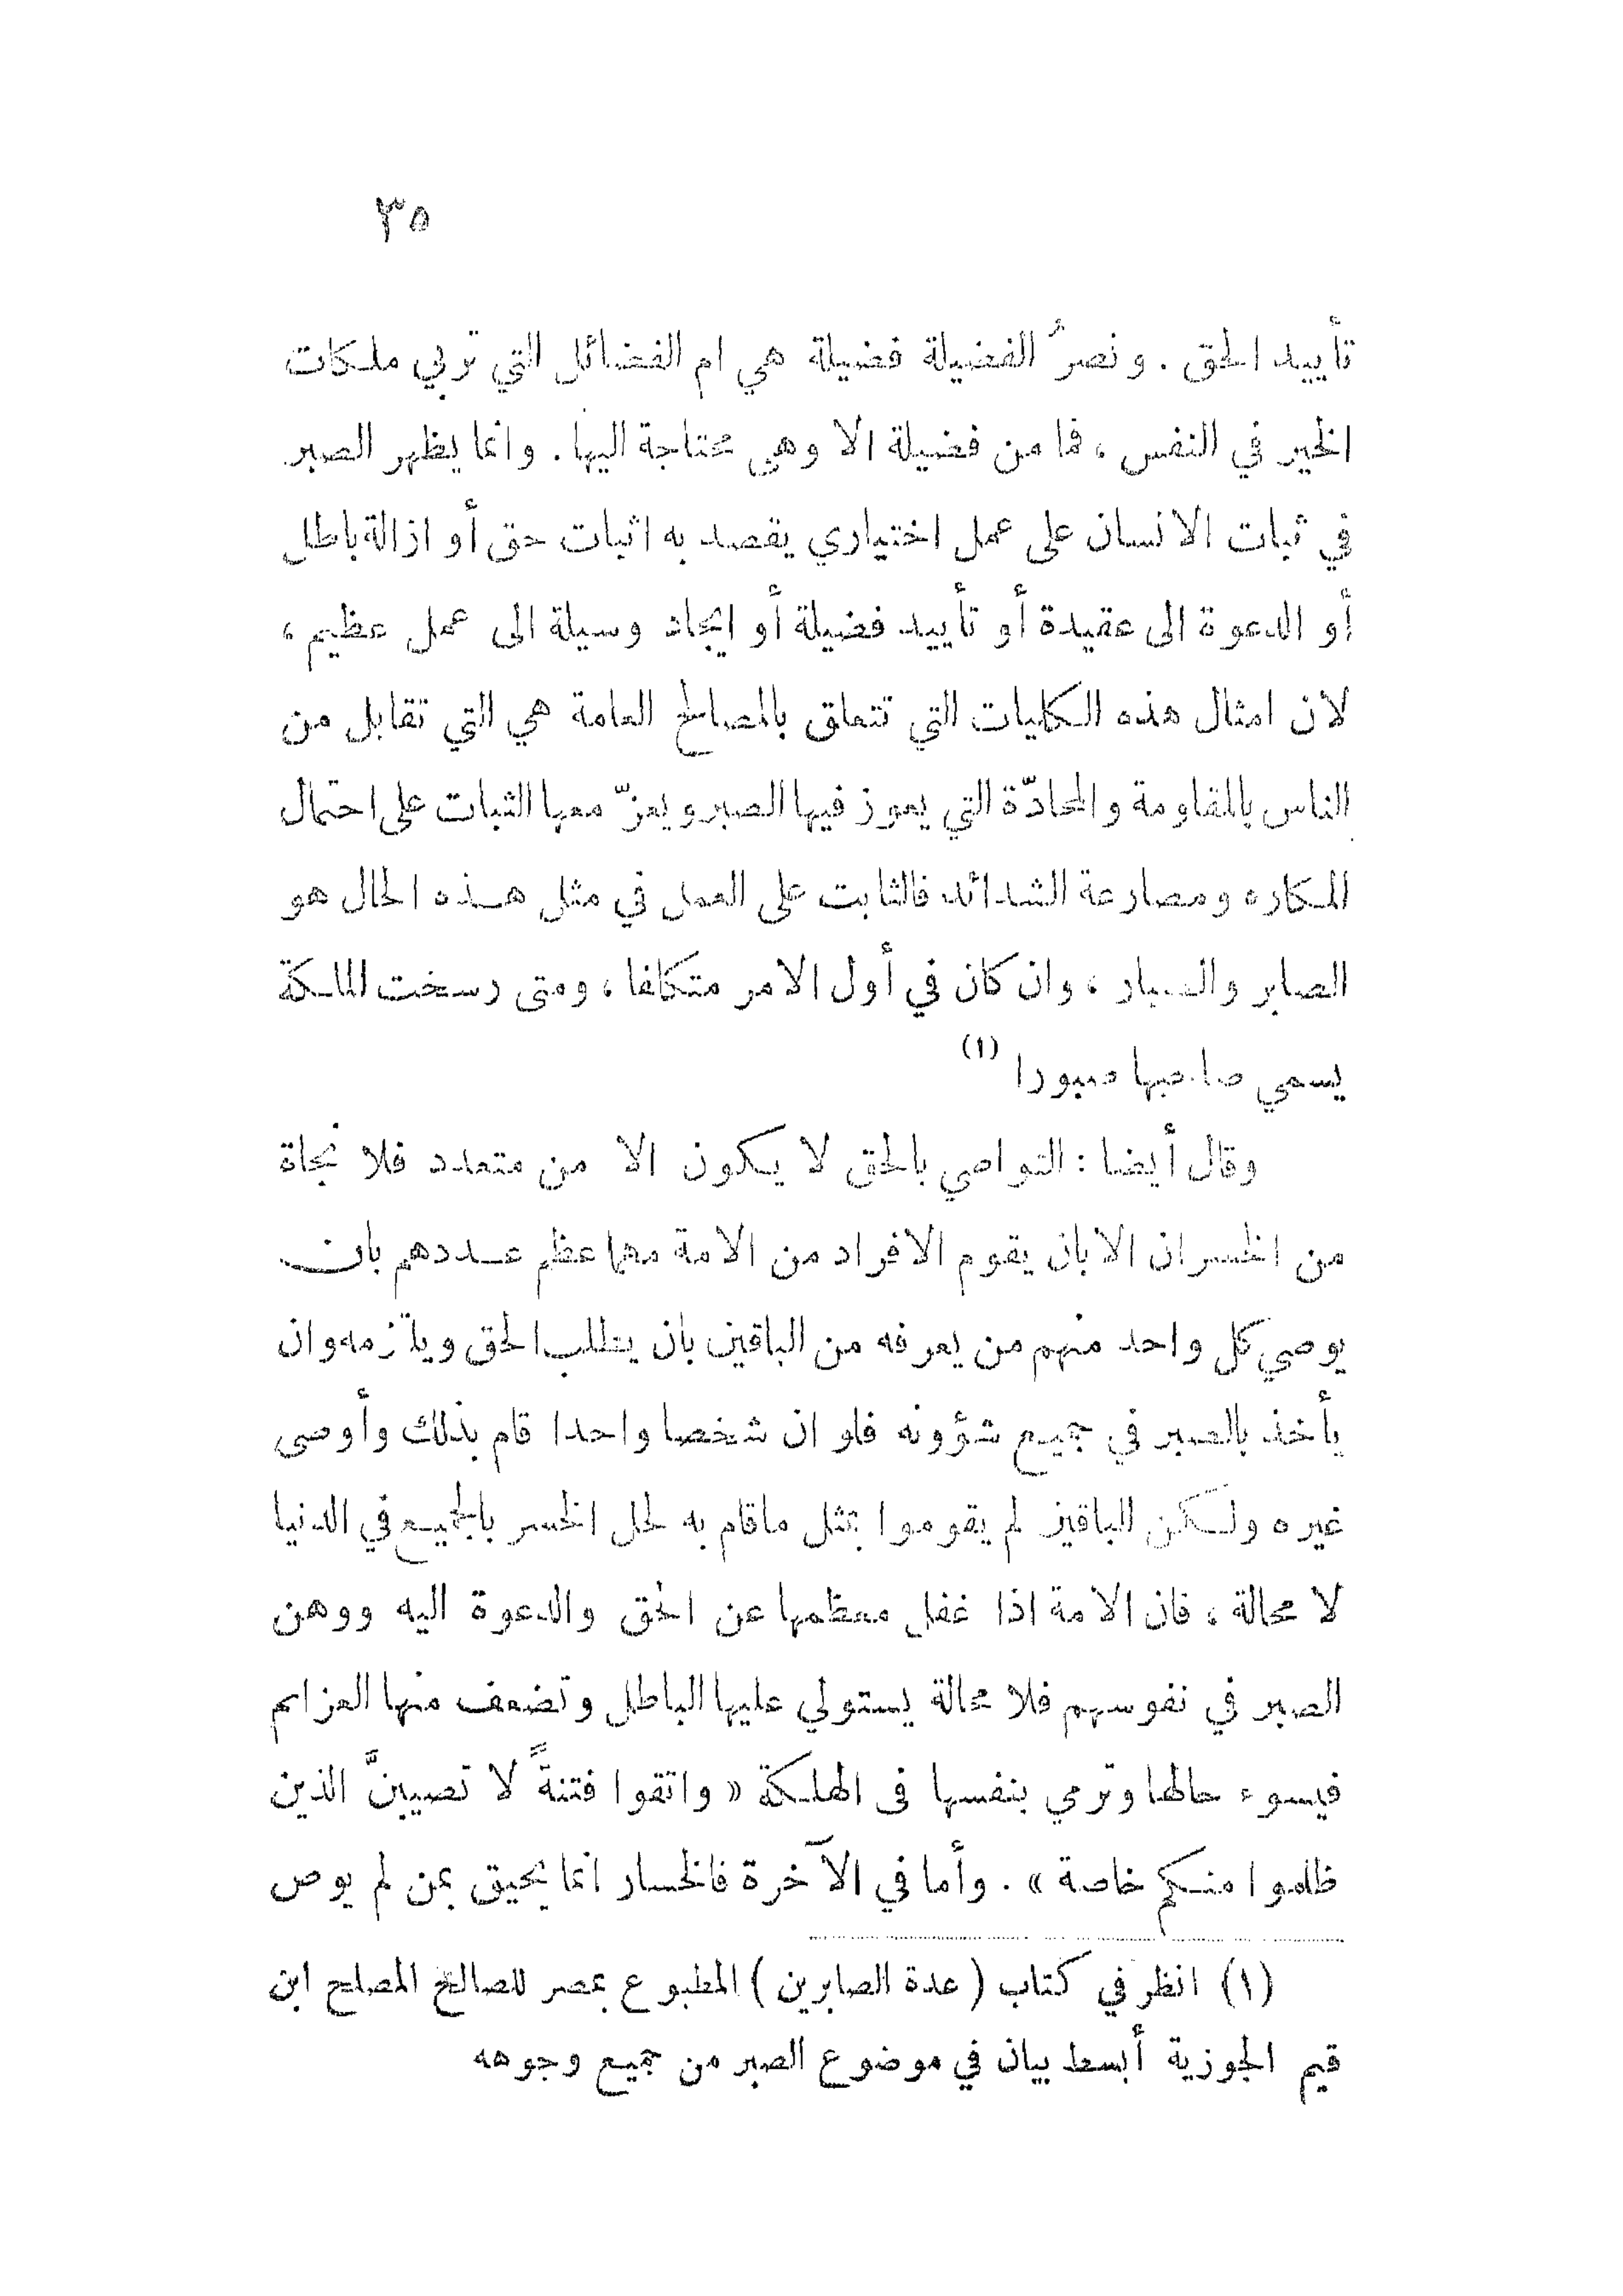 ٣٥
تأييد الحق . ونصرُ الفضيلة فضيلة هي ام الفضائل التي تربي ملكات
الخير في النفس ، فما من فضيلة الا وهي محتاجة اليها . وانما يظهر الصبر
في ثبات الانسان على عمل اختياري يقصد به اثبات حق أو ازالة باطل
أو الدعوة الى عقيدة أو تأييد فضيلة أو ايجاد وسيلة الى عمل عظيم ،
لان امثال هذه الكليات التي تتعلق بالمصالح العامة هي التي تقابل من
الناس بالمقاومة والمحادّة التي يعوز فيها الصبر ويعزّ معها الثبات على احتمال
المكاره ومصارعة الشدائد فالثابت على العمل في مثل هذه الحال هو
الصابر والصبار ، وان كان في أول الامر متكلفا ، ومتى رسخت الملكة
يسمي صاحبها صبورا (١)
وقال أيضا : التواصي بالحق لا يكون الا من متعدد فلا نجاة
من الخسران الا بان يقوم الافراد من الامة مهما عظم عددهم بان
يوصي كل واحد منهم من يعرفه من الباقين بان يطلب الحق ويلتزمه وان
يأخذ بالصبر في جميع شؤونه فلو ان شخصا واحدا قام بذلك وأوصى
غيره ولكن الباقين لم يقوموا بمثل ماقام به لحل الخسر بالجميع في الدنيا
لا محالة ، فان الامة اذا غفل معظمها عن الحق والدعوة اليه ووهن
الصبر في نفوسهم فلا محالة يستولي عليها الباطل وتضعف منها العزائم
فيسوء حالها وترمي بنفسها فى الهلكة « واتقوا فتنةً لا تصيبنَّ الذين
ظلموا منكم خاصة » . وأما في الآخرة فالخسار انما يحيق بمن لم يوص
(١) انظر في كتاب ( عدة الصابرين ) المطبوع بمصر للصالح المصلح ابن
قيم الجوزية أبسط بيان في موضوع الصبر من جميع وجوهه